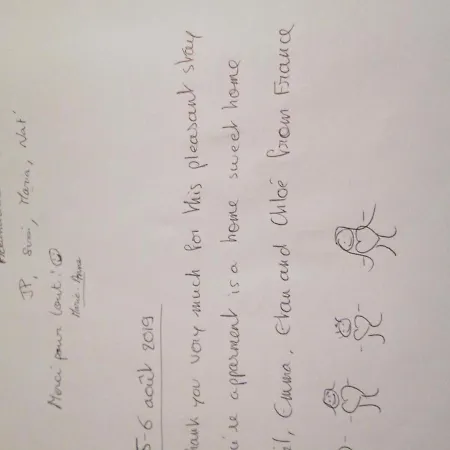 JP, Marra, Nat'
Merci pour tout!
5-6 août 2019
hank you very much for this pleasant stay
're apparment is a home sweet home
l, Emma, Etan and Chloé from France